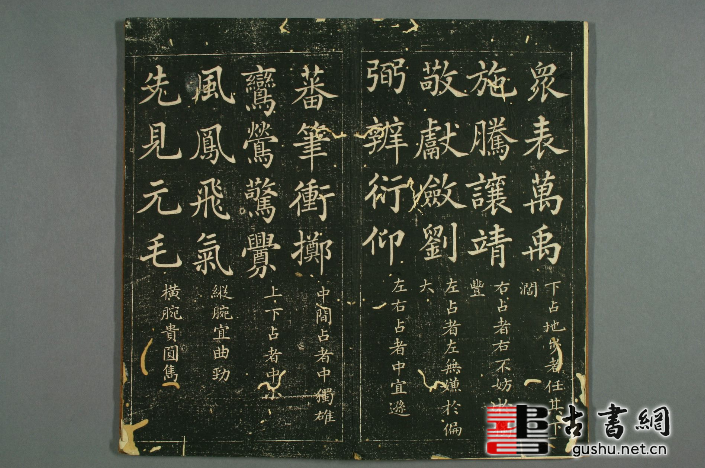 眾表萬禹
下占地步者任其下
濶
施騰讓靖
右占者右不妨
豐
敬獻斂劉
左占者左無嫌於偏
大
弼辦衍仰
左右占者中宜遜
蕃筆衝擲
中間占者中獨雄
鸞鶯驚釁
上下占者中小
風鳳飛氣
縱腕宜曲勁
先見元毛
橫腕貴圓雋
古書網
gushu.net.cn